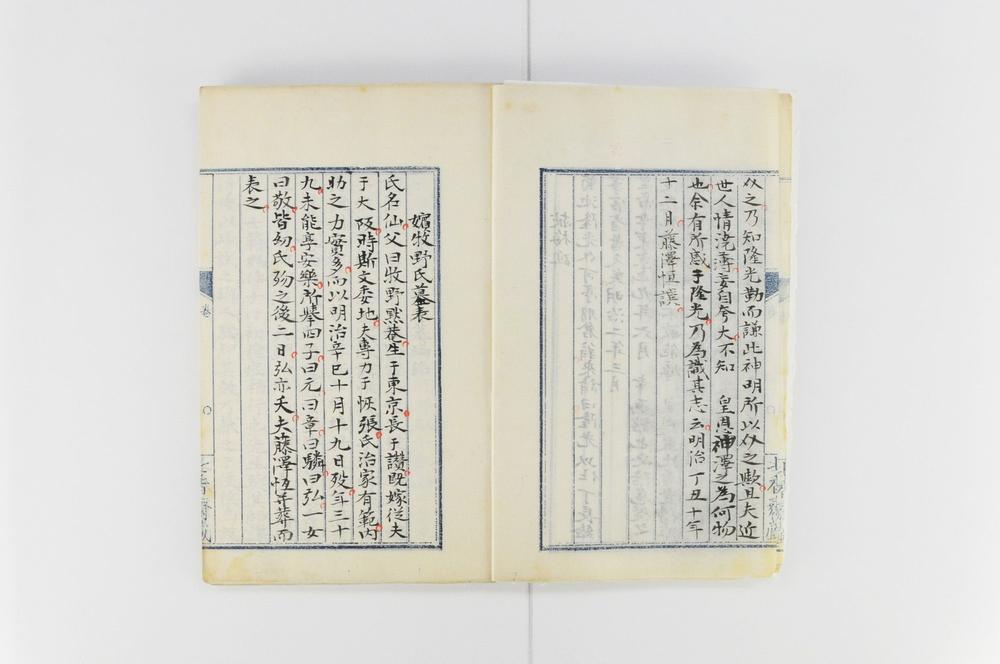 从之乃知隆光勤而謙此神明所以从之歟且夫近
世人情澆薄妄自夸大不知　皇恩神澤之為何物
也余有所感于隆光乃為識其志云明治丁丑十年
十二月藤澤恒譔
嬪牧野氏墓表
氏名仙父曰牧野黙菴生于東京長于讃既嫁従夫
于大阪時斯文委地夫專力于恢張氏治家有範内
助之力實多而以明治辛巳十月十九日歿年三十
九未能享安樂所擧四子曰元曰章曰驎曰弘一女
曰敬皆幼氏歿之後二日弘亦夭夫藤澤恒并葬而
表之